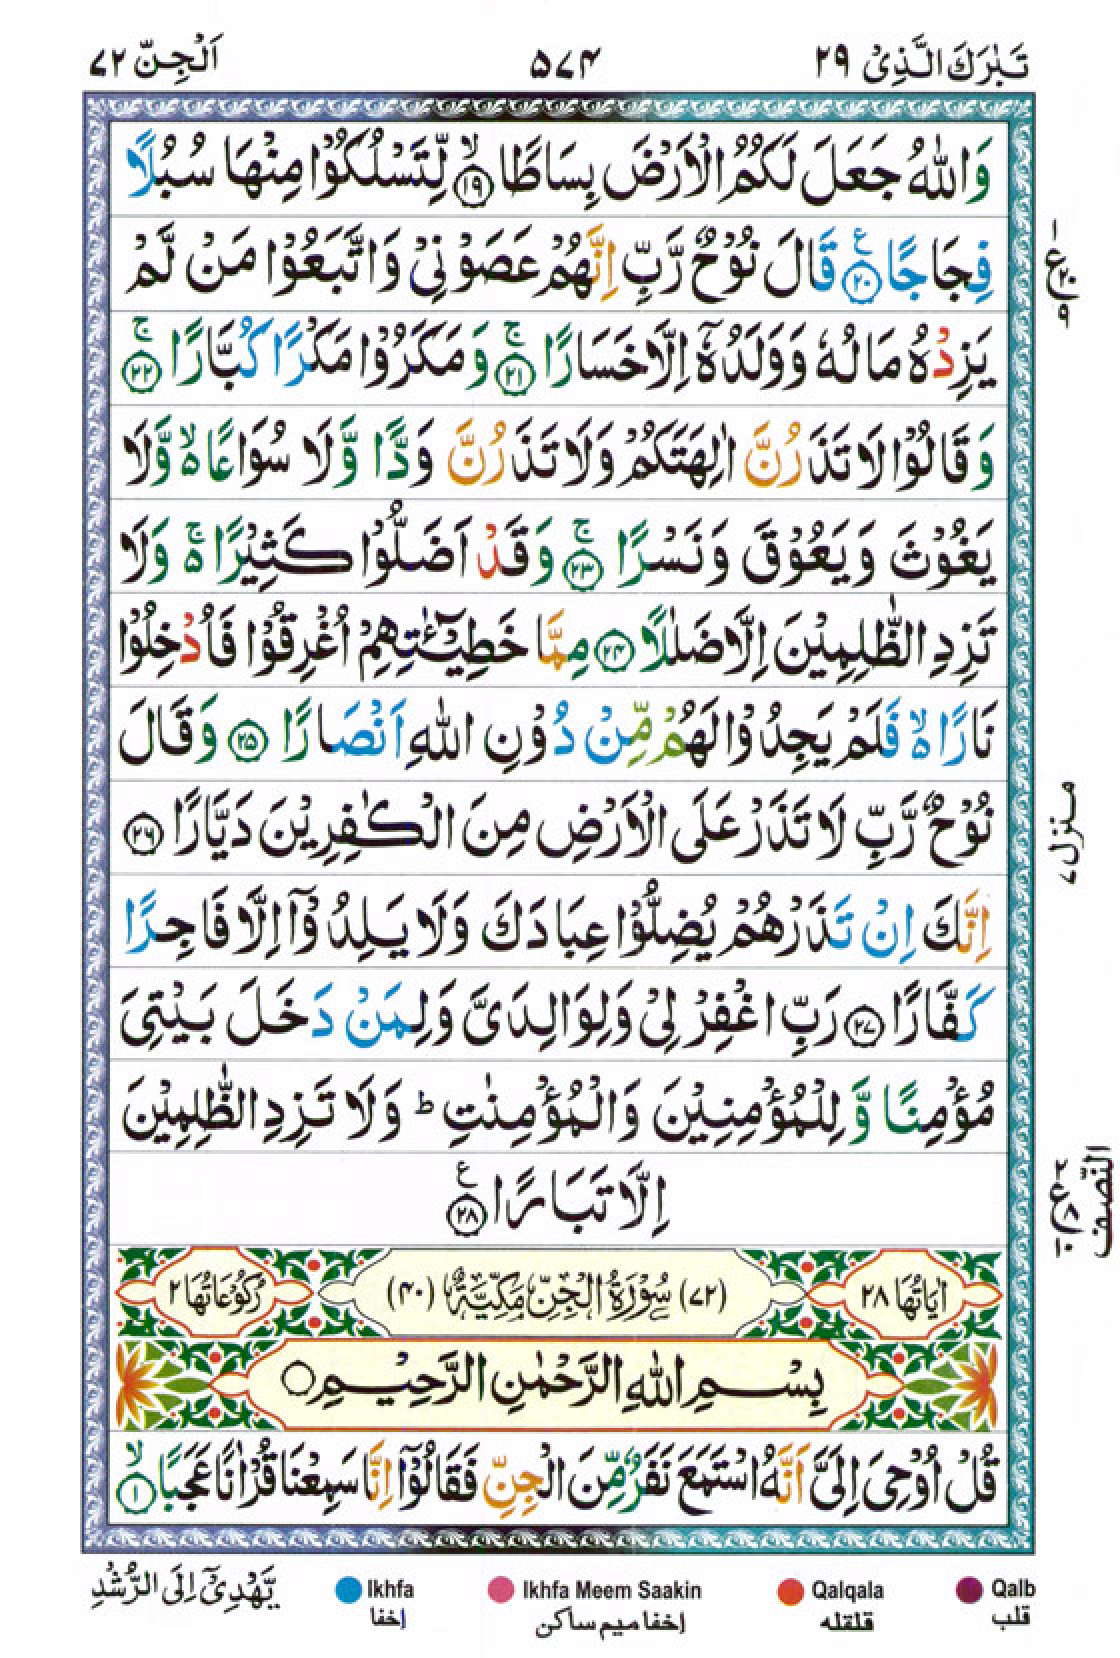 تَبٰرَكَ الَّذِیْ ٢٩
۵۷۴
اَلْجِنّ ٧٢
وَاللّٰهُ جَعَلَ لَكُمُ الْاَرْضَ بِسَاطًا ۙ﴿١٩﴾ لِّتَسْلُكُوْا مِنْهَا سُبُلًا
فِجَاجًا ﴿٢٠﴾ ع قَالَ نُوْحٌ رَّبِّ اِنَّهُمْ عَصَوْنِیْ وَاتَّبَعُوْا مَنْ لَّمْ
یَزِدْهُ مَالُهٗ وَوَلَدُهٗۤ اِلَّا خَسَارًا ۚ﴿٢١﴾ وَمَكَرُوْا مَكْرًا كُبَّارًا ۚ﴿٢٢﴾
وَقَالُوْا لَا تَذَرُنَّ اٰلِهَتَكُمْ وَلَا تَذَرُنَّ وَدًّا وَّلَا سُوَاعًا ۙ۬ وَّلَا
یَغُوْثَ وَیَعُوْقَ وَنَسْرًا ۚ﴿٢٣﴾ وَقَدْ اَضَلُّوْا كَثِیْرًا ۚ۬ وَلَا
تَزِدِ الظّٰلِمِیْنَ اِلَّا ضَلٰلًا ﴿٢٤﴾ مِمَّا خَطِیْٓـٰٔتِهِمْ اُغْرِقُوْا فَاُدْخِلُوْا
نَارًا ۙ۬ فَلَمْ یَجِدُوْا لَهُمْ مِّنْ دُوْنِ اللّٰهِ اَنْصَارًا ﴿٢٥﴾ وَقَالَ
نُوْحٌ رَّبِّ لَا تَذَرْ عَلَی الْاَرْضِ مِنَ الْكٰفِرِیْنَ دَیَّارًا ﴿٢٦﴾
اِنَّكَ اِنْ تَذَرْهُمْ یُضِلُّوْا عِبَادَكَ وَلَا یَلِدُوْۤا اِلَّا فَاجِرًا
كَفَّارًا ﴿٢٧﴾ رَبِّ اغْفِرْ لِیْ وَلِوَالِدَیَّ وَلِمَنْ دَخَلَ بَیْتِیَ
مُؤْمِنًا وَّ لِلْمُؤْمِنِیْنَ وَالْمُؤْمِنٰتِ ؕ وَلَا تَزِدِ الظّٰلِمِیْنَ
اِلَّا تَبَارًا ﴿٢٨﴾ ع
اٰیَاتُهَا ٢٨ (٧٢) سُوْرَةُ الْجِنِّ مَكِّیَّةٌ (۴٠) رُكُوْعَاتُهَا ٢
بِسْمِ اللّٰهِ الرَّحْمٰنِ الرَّحِیْمِ
قُلْ اُوْحِیَ اِلَیَّ اَنَّهُ اسْتَمَعَ نَفَرٌ مِّنَ الْجِنِّ فَقَالُوْۤا اِنَّا سَمِعْنَا قُرْاٰنًا عَجَبًا ۙ﴿١﴾
منزل ٧
النّصف
یَّهْدِیْۤ اِلَی الرُّشْدِ
Ikhfa اخفا
Ikhfa Meem Saakin اخفا میم ساکن
Qalqala قلقله
Qalb قلب